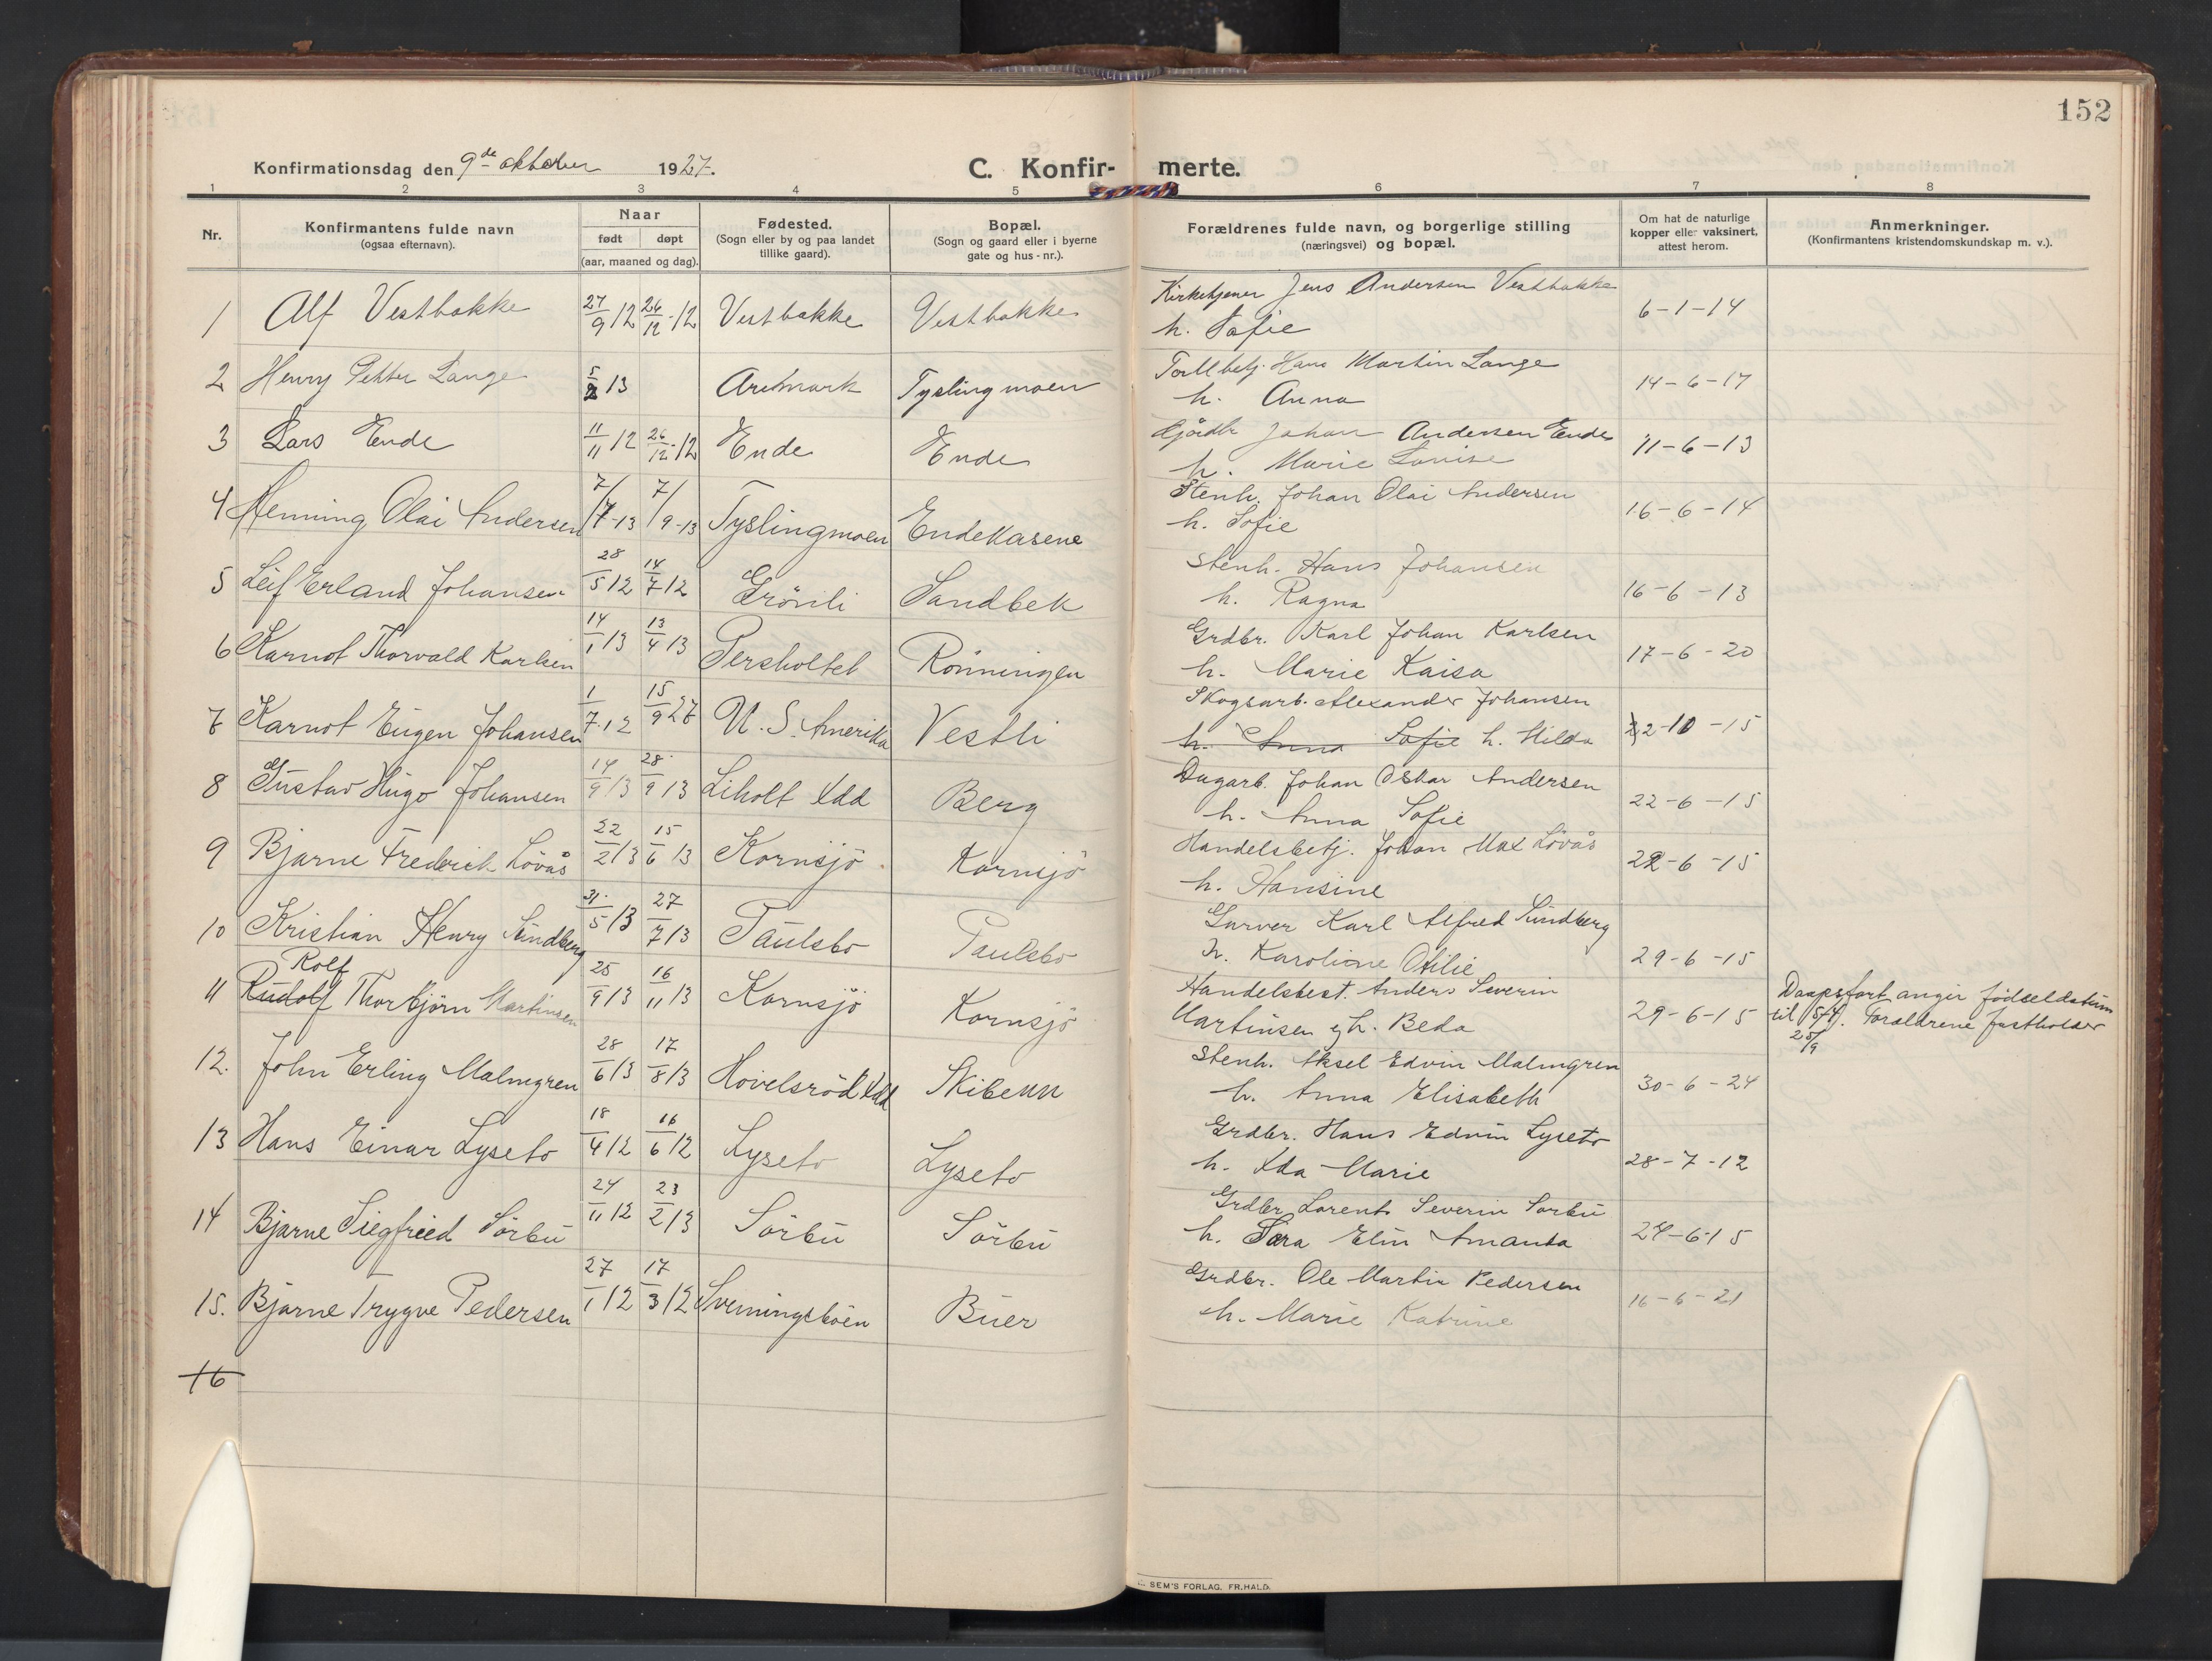 152
Konfirmationsdag den 9de oktober 1927.
C. Konfir- merte.
1 2 3 4 5 6 7 8
Nr.
Konfirmantens fulde navn
(ogsaa efternavn).
Naar
født døpt
(aar, maaned og dag).
Fødested.
(Sogn eller by og paa landet
tillike gaard).
Bopæl.
(Sogn og gaard eller i byerne
gate og hus-nr.).
Forældrenes fulde navn, og borgerlige stilling
(næringsvei) og bopæl.
Om hat de naturlige
kopper eller vaksinert,
attest herom.
Anmerkninger.
(Konfirmantens kristendomskundskap m. v.).
1 Alf Vestbakke 27/9 12 26/12-12 Vestbakke Vestbakke Kirketjener Jens Andersen Vestbakke 6-1-14
h. Sofie
2 Henry Petter Lange 5/2 13 Aremark Tyslingmoen Tollbetj. Hans Martin Lange 14-6-17
h. Anna
3 Lars Ende 11/11 12 26/12-12 Ende Ende Gårdbr Johan Andersen Ende 11-6-13
h. Marie Lovise
4 Henning Olai Andersen 7/7-13 7/9-13 Tyslingmoen Endekasene Stenh. Johan Olai Andersen 16-6-14
h. Sofie
5 Leif Erland Johansen 28/5 12 14/7 12 Grönli Sandbek Stenh. Hans Johansen 16-6-13
h. Ragna
6 Karnot Thorvald Karlsen 14/1 13 13/4 13 Persholtet Rönningen Grdbr. Karl Johan Karlsen 17-6-20
h. Marie Kaisa
7 Karnot Eugen Johansen 1/7.12 15/9 27 U.S. Amerika Vestli Skogsarb. Alexander Johansen 22-10-15
h. Anna Sofie h. Hilda
8 Gustav Hugo Johansen 14/9 13 28/9 13 Liholt Idd Berg Dagarb. Johan Oskar Andersen 22-6-15
h. Anna Sofie
9 Bjarne Frederik Lövås 22/2 13 15/6 13 Kornsjö Kornsjö Handelsbetj. Johan Max Lövås 22-6-15
h. Hansine
10 Kristian Henry Sundberg 31/5 13 27/7 13 Paulsbo Paulsbo Garver Karl Alfred Sundberg
h. Karoline Otilie 29-6-15
Rolf
11 Rudolf Thorbjörn Martinsen 25/9 13 16/11 13 Kornsjö Kornsjö Handelsbest. Anders Severin 29-6-15 Daapsfort angir födseldatum
Martinsen og h. Beda til 15/9. Foraldrene fastholder
25/9
12. John Erling Malmgren 28/6 13 17/8 13 Hovelsröd Idd Skibenn Stenh. Aksel Edvin Malmgren 30-6-24
h. Anna Elisabeth
13 Hans Einar Lysebo 18/4 12 16/6 12 Lysebo Lysebo Grdbr. Hans Edvin Lysebo
h. Ida Marie 28-7-12
14 Bjarne Siegfried Sörbu 24/11 12 23/2 13 Sörbu Sörbu Grdbr Lorents Severin Sorbu 24-6-15
h. Sara Elin Amanda
15. Bjarne Trygve Pedersen 27/1 12 17/3 12 Sveningsböen Buer Grdbr. Ole Martin Pedersen 16-6-21
h. Marie Katrine
16
SEM'S FORLAG, FR.HALD.